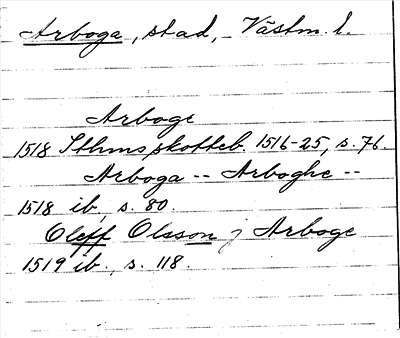 Arboga, stad, Västm. l.
Arboge
1518 Sthms skotteb. 1516-25, s. 76.
Arboga -- Arboghe --
1518 ib., s. 80.
Oleff Olsson j Arboge
1519 ib., s. 118.